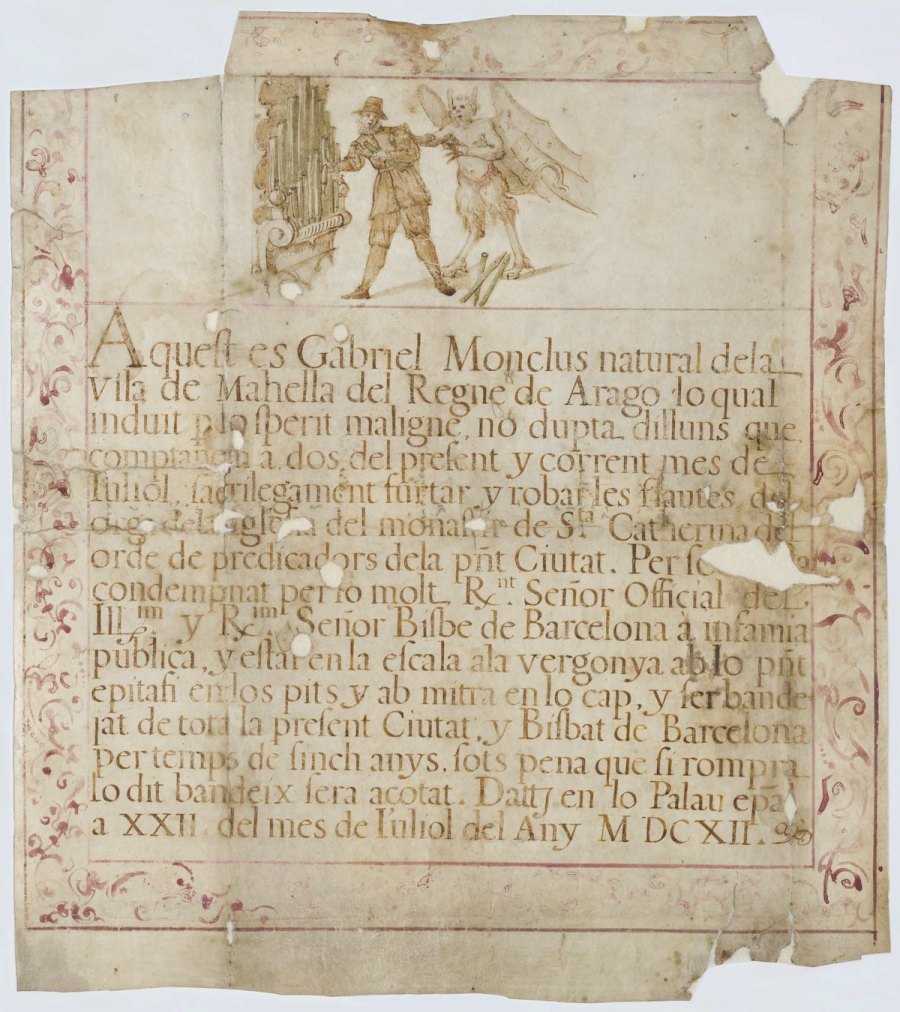 Aquest es Gabriel Monclus natural dela
Vila de Mahella del Regne de Arago lo qual
induit p lo sperit maligne, no dupta dilluns que
comptauem a dos, del present y corrent mes de
Iuliol, sacrilegament furtar y robar les flautes del
orga dela iglesia del monastir de S.ta Catherina del
orde de predicadors dela pñt Ciutat. Per
condempnat per lo molt R.nt Señor Official del
Ill.m y R.m Señor Bisbe de Barcelona a infamia
publica, y estar en la escala ala vergonya ab lo pñt
epitafi en los pits, y ab mitra en lo cap, y ser bande
jat de tota la present Ciutat, y Bisbat de Barcelona
per temps de sinch anys, sots pena que si rompra
lo dit bandeix sera acotat. Datt en lo Palau epãl
a XXII del mes de Iuliol del Any M DCXII.